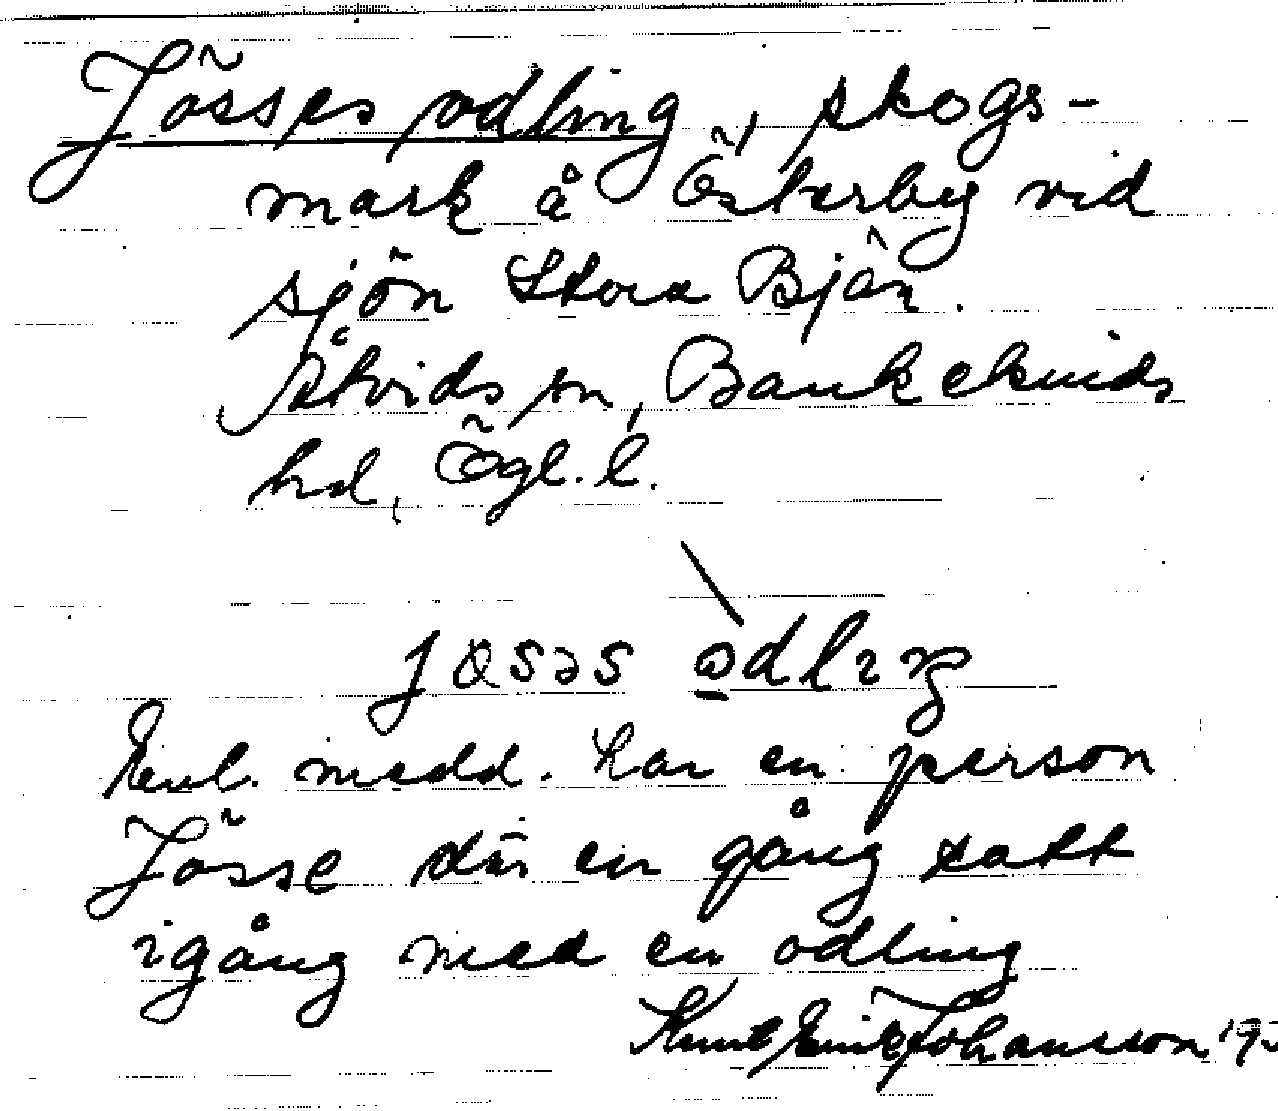 Jösses odling, skogs-
mark å Österby vid
sjön Stora Bjän.
Åtvids sn, Bankekinds
hd, Ögl. l.
jøsəs ɷdlıŋ
Enl. medd. har en person
Jösse där en gång satt
igång med en odling
Knut Erik Johansson 193